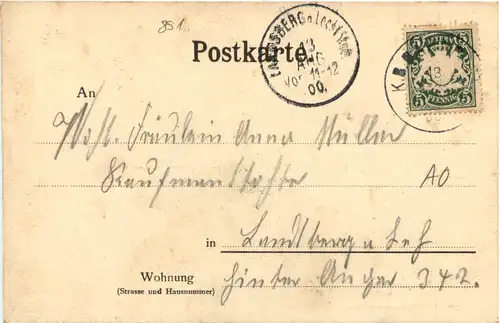 851.
Postkarte.
LANDSBERG a. Lech Stadt
13
AUG
Vor. 11-12
00.
BAYERN
5 5
PFENNIG
K.B.
13
An
Wohl. Fräulein Anna Müller
Kaufmannstochter
AO
in Landsberg a Lech
Wohnung
(Strasse und Hausnummer)
Hinter Anger 342.